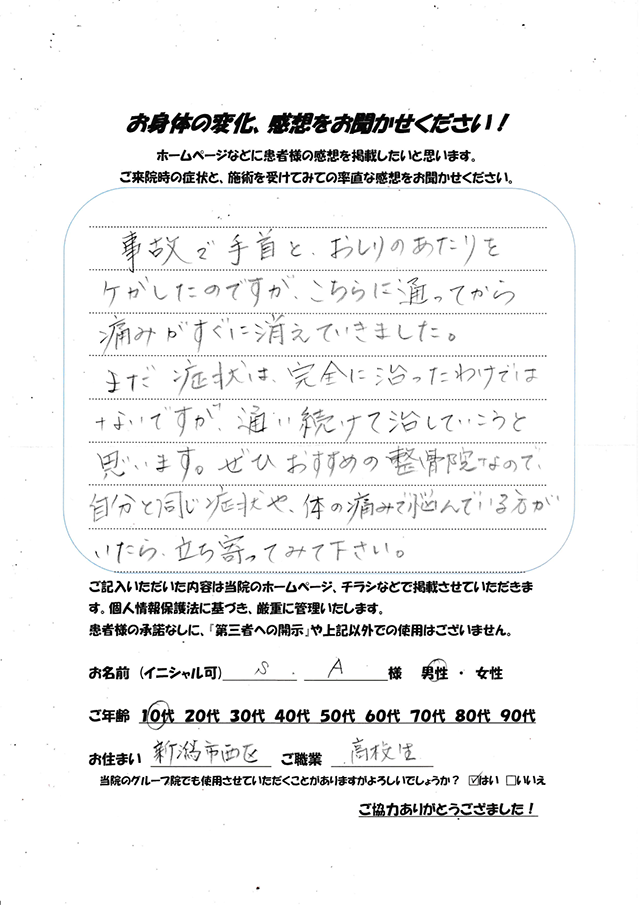 お身体の変化、感想をお聞かせください！
ホームページなどに患者様の感想を掲載したいと思います。
ご来院時の症状と、施術を受けてみての率直な感想をお聞かせください。
事故で手首と、おしりのあたりを
ケガしたのですが、こちらに通ってから
痛みがすぐに消えていきました。
まだ 症状は、完全に治ったわけでは
ないですが、通い続けて治していこうと
思います。ぜひ おすすめの整骨院なので、
自分と同じ症状や、体の痛みで悩んでいる方が
いたら、立ち寄ってみて下さい。
ご記入いただいた内容は当院のホームページ、チラシなどで掲載させていただきま
す。個人情報保護法に基づき、厳重に管理いたします。
患者様の承諾なしに、「第三者への開示」や上記以外での使用はございません。
お名前（イニシャル可） S . A 様 男性 ・ 女性
ご年齢 10代 20代 30代 40代 50代 60代 70代 80代 90代
お住まい 新潟市西区 ご職業 高校生
当院のグループ院でも使用させていただくことがありますがよろしいでしょうか？ ☑はい □いいえ
ご協力ありがとうござました！